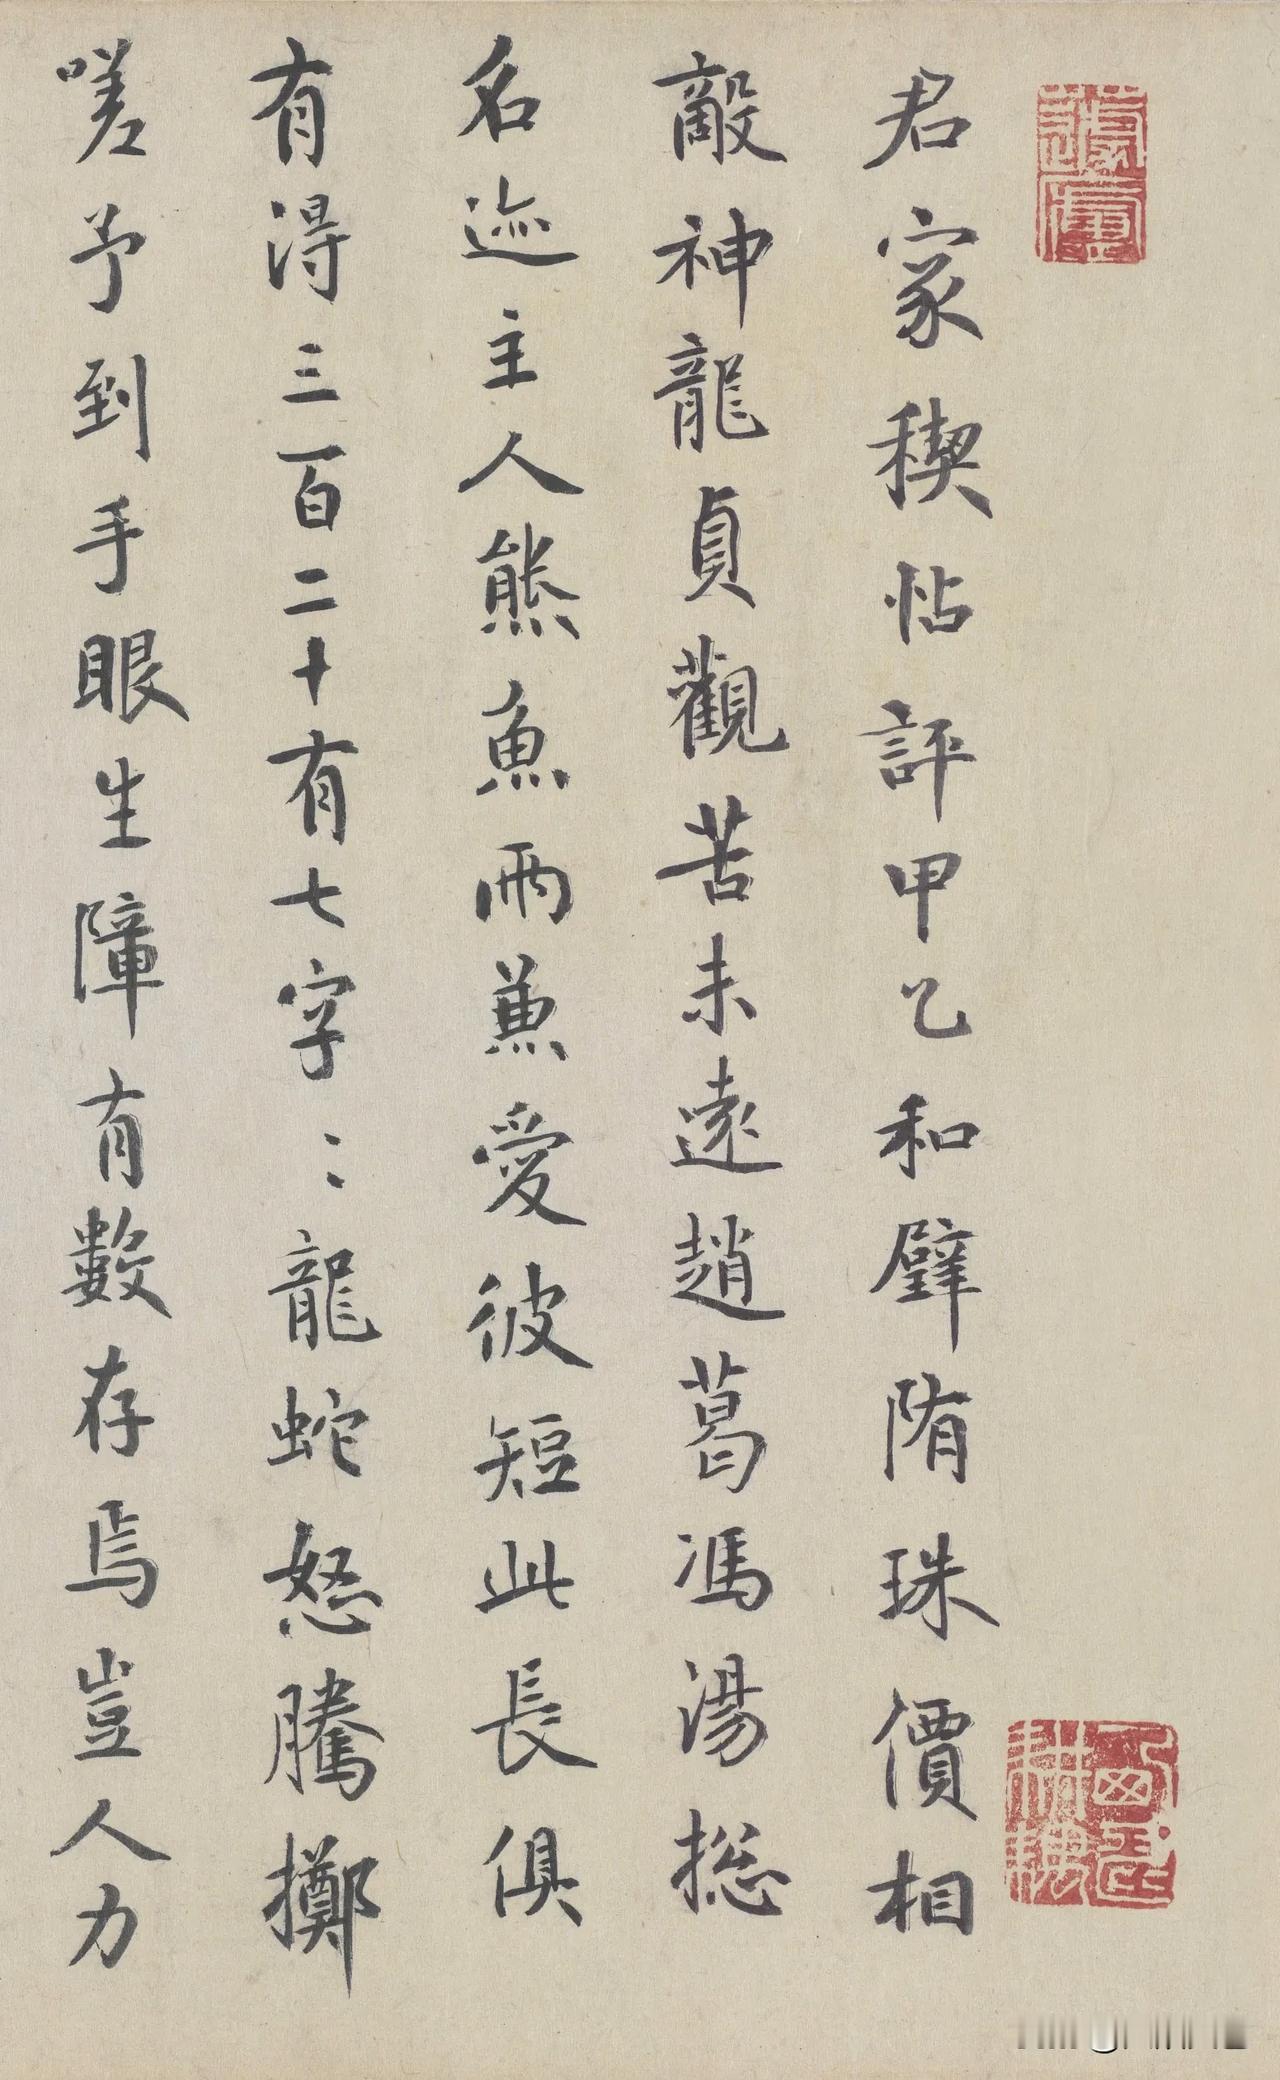 君家稧帖評甲乙和璧陏珠價相
敵神龍貞觀苦未遠趙葛馮湯揔
名迹主人熊魚兩兼愛彼短此長俱
有得三百二十有七字〻龍蛇怒騰擲
嗟予到手眼生障有數存焉豈人力